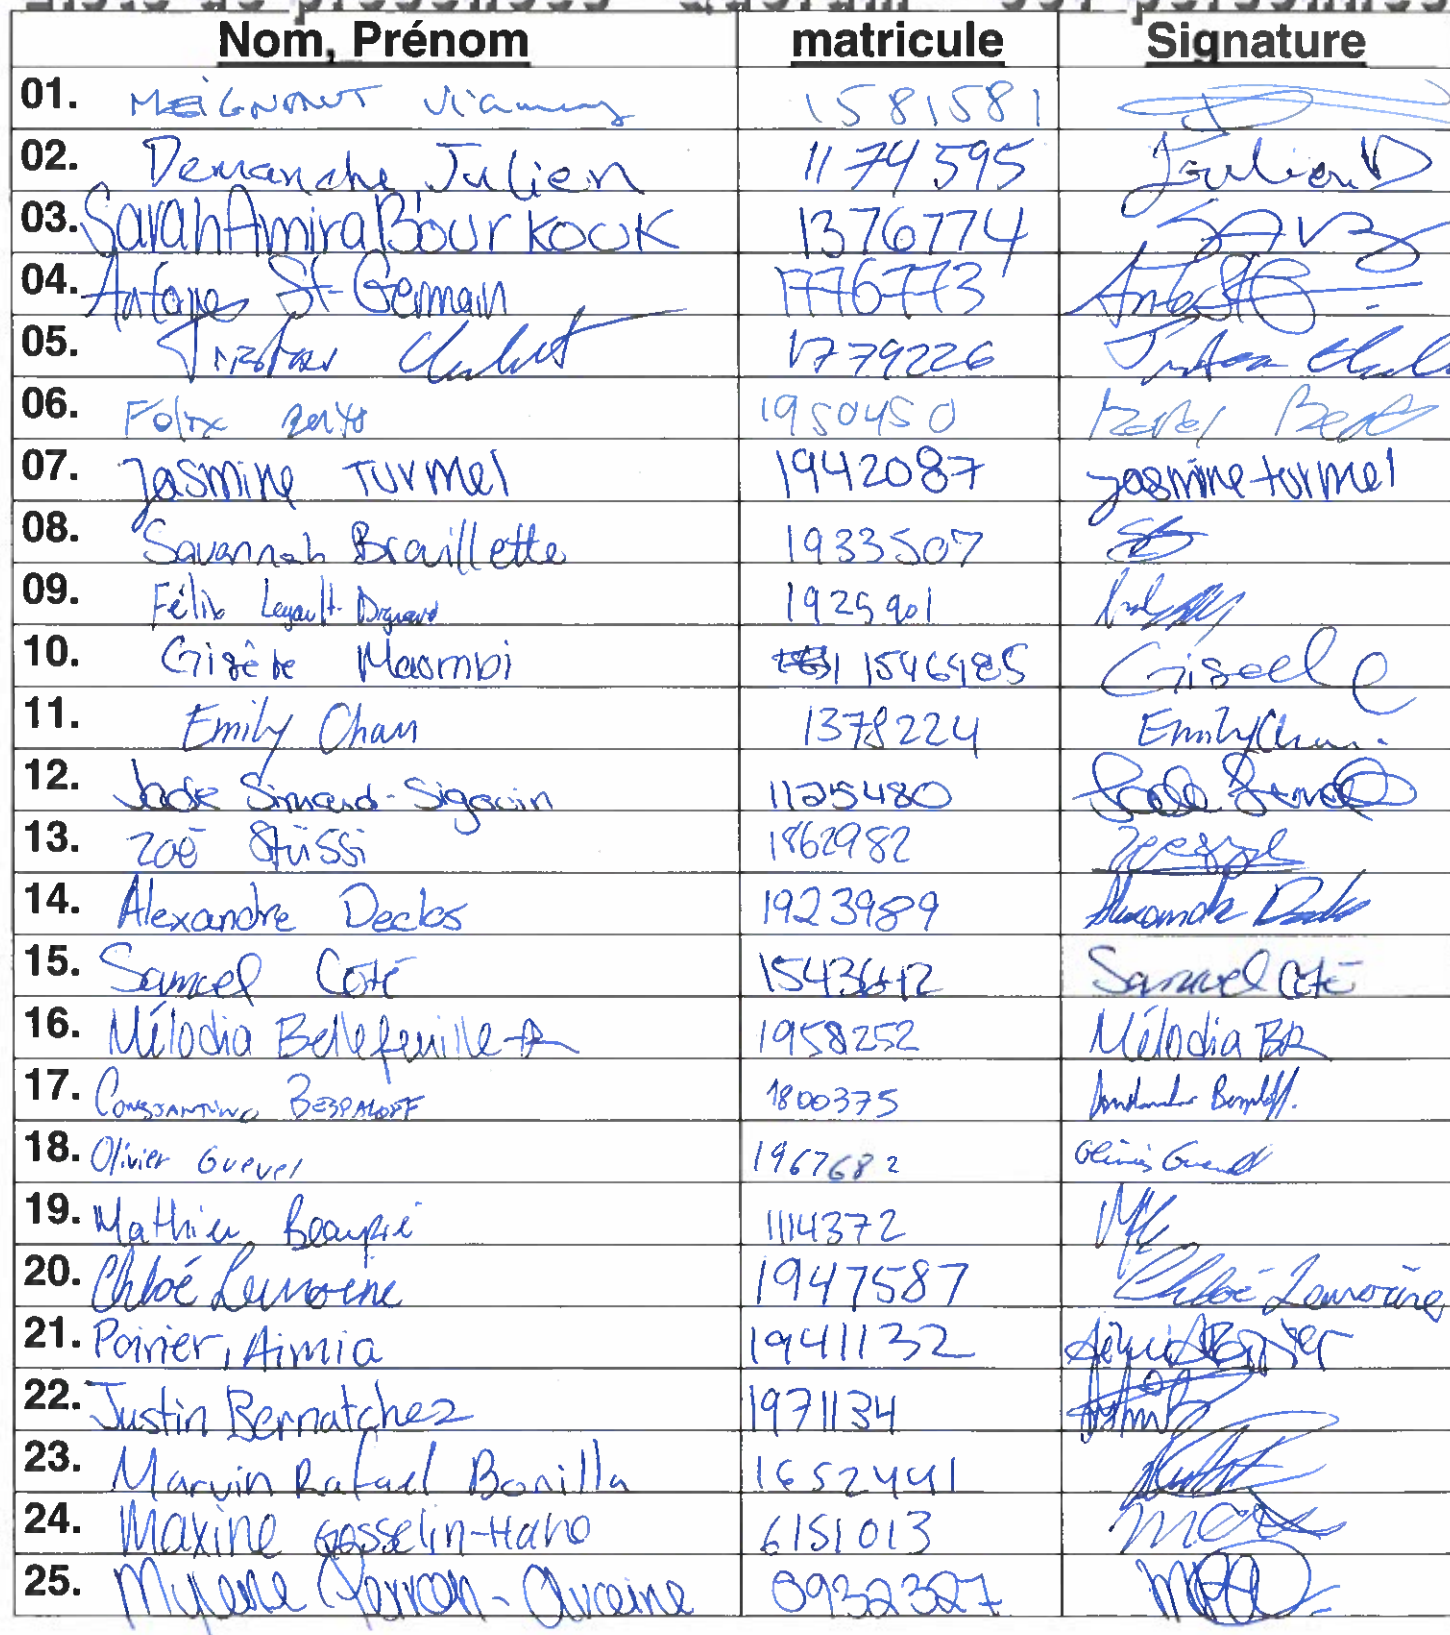 Nom, Prénom matricule Signature
01. MEIGNANT 1581581
02. Demanche, Julien 1174595 Julien D
03. Sarah Amira Bourkouk 1376774
04. St-Germain 1776773
05. Tristan 1779226 Tristan
06. Félix 1950450
07. Jasmine Turmel 1942087 jasmine turmel
08. Savannah Braillette 1933507
09. Félix Legault- 1925901
10. Masmbi 1546985 Giselle
11. Emily Chan 1378224 Emily Chan.
12. Jade Simard-Sigouin 1125480
13. Zoë Stüssi 1862982
14. Alexandre Declos 1923989 Alexandre
15. Samuel Côté Samuel Côté
16. Mélodia Bellefeuille-R 1958252 Mélodia BR
17. Constantino BESPALOFF 1800375
18. Olivier Guevel 1967682 Olivier Guevel
19. Mathieu Beaupré 1114372
20. Chloé Lemoine 1947587 Chloé Lemoine
21. Poirier, Aimia 1941132
22. Justin Bernatchez 1971134
23. Marvin Rafael Bonilla 1652441
24. Maxine Gosselin-Hano 6151013
25. Mylène 0932327